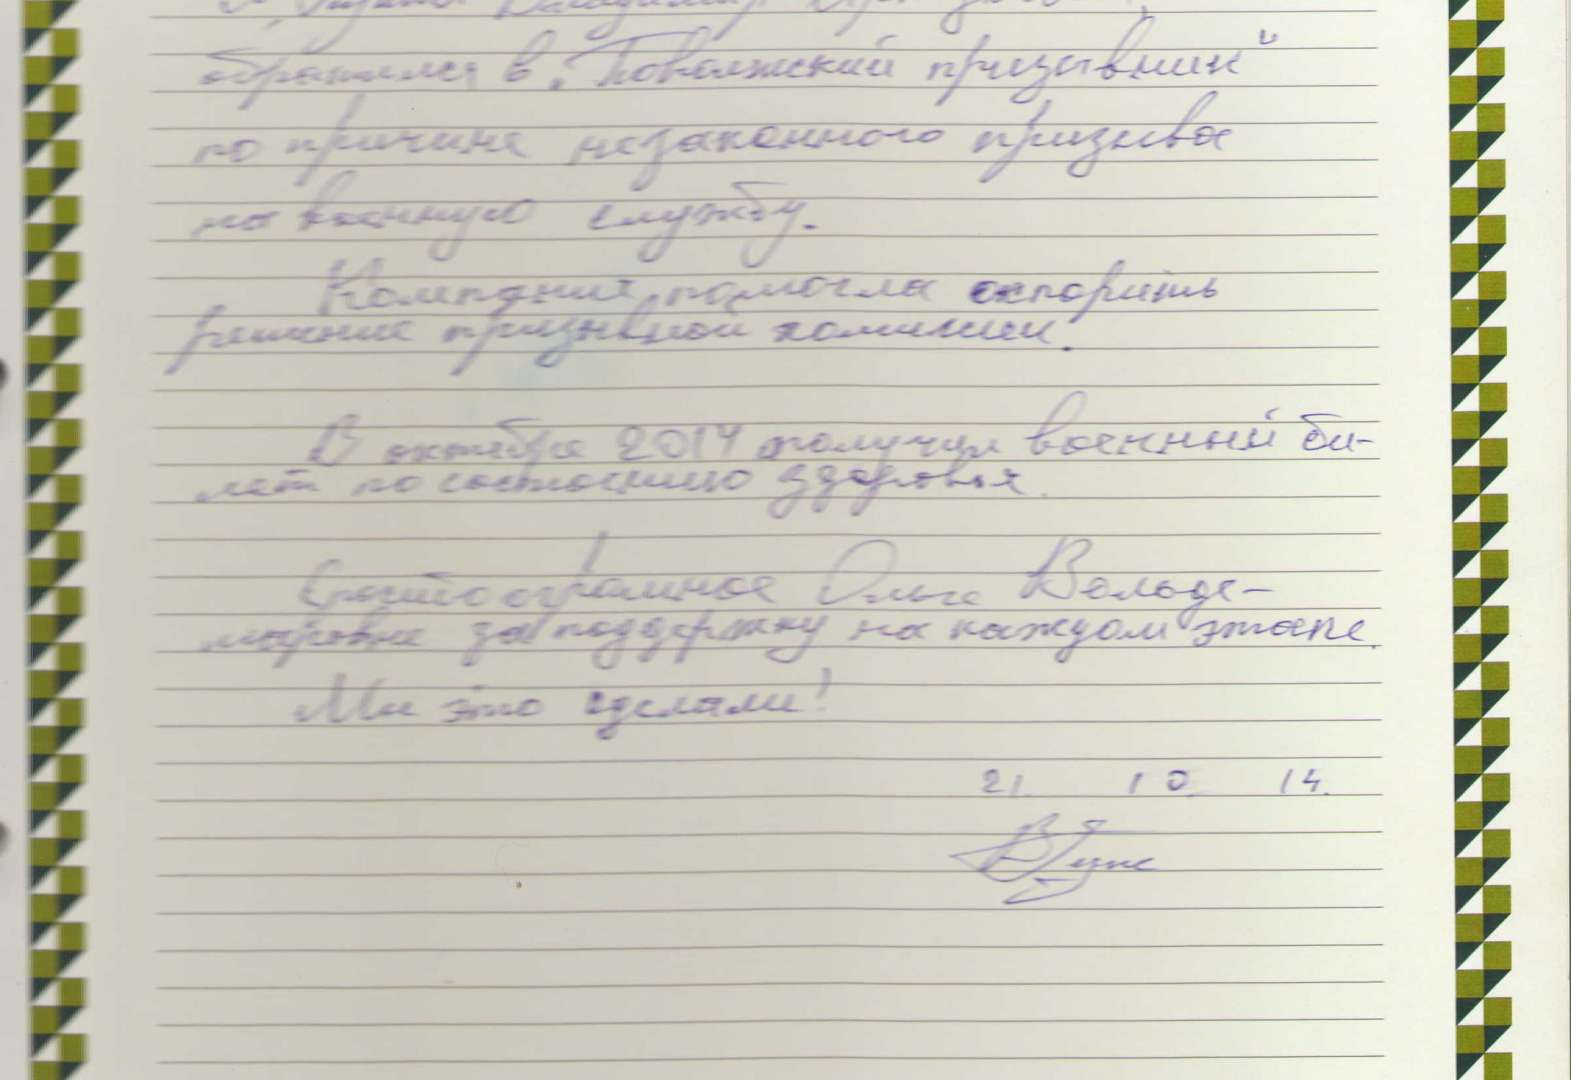 обратился в "Поволжский призывник"
по причине незаконного призыва
на военную службу.
Компания помогла оспорить
решение призывной комиссии.
В октябре 2014 получил военный би-
лет по состоянию здоровья.
огромное Ольге Вольде-
маровне за поддержку на каждом этапе.
Мы это сделали!
21. 10. 14.